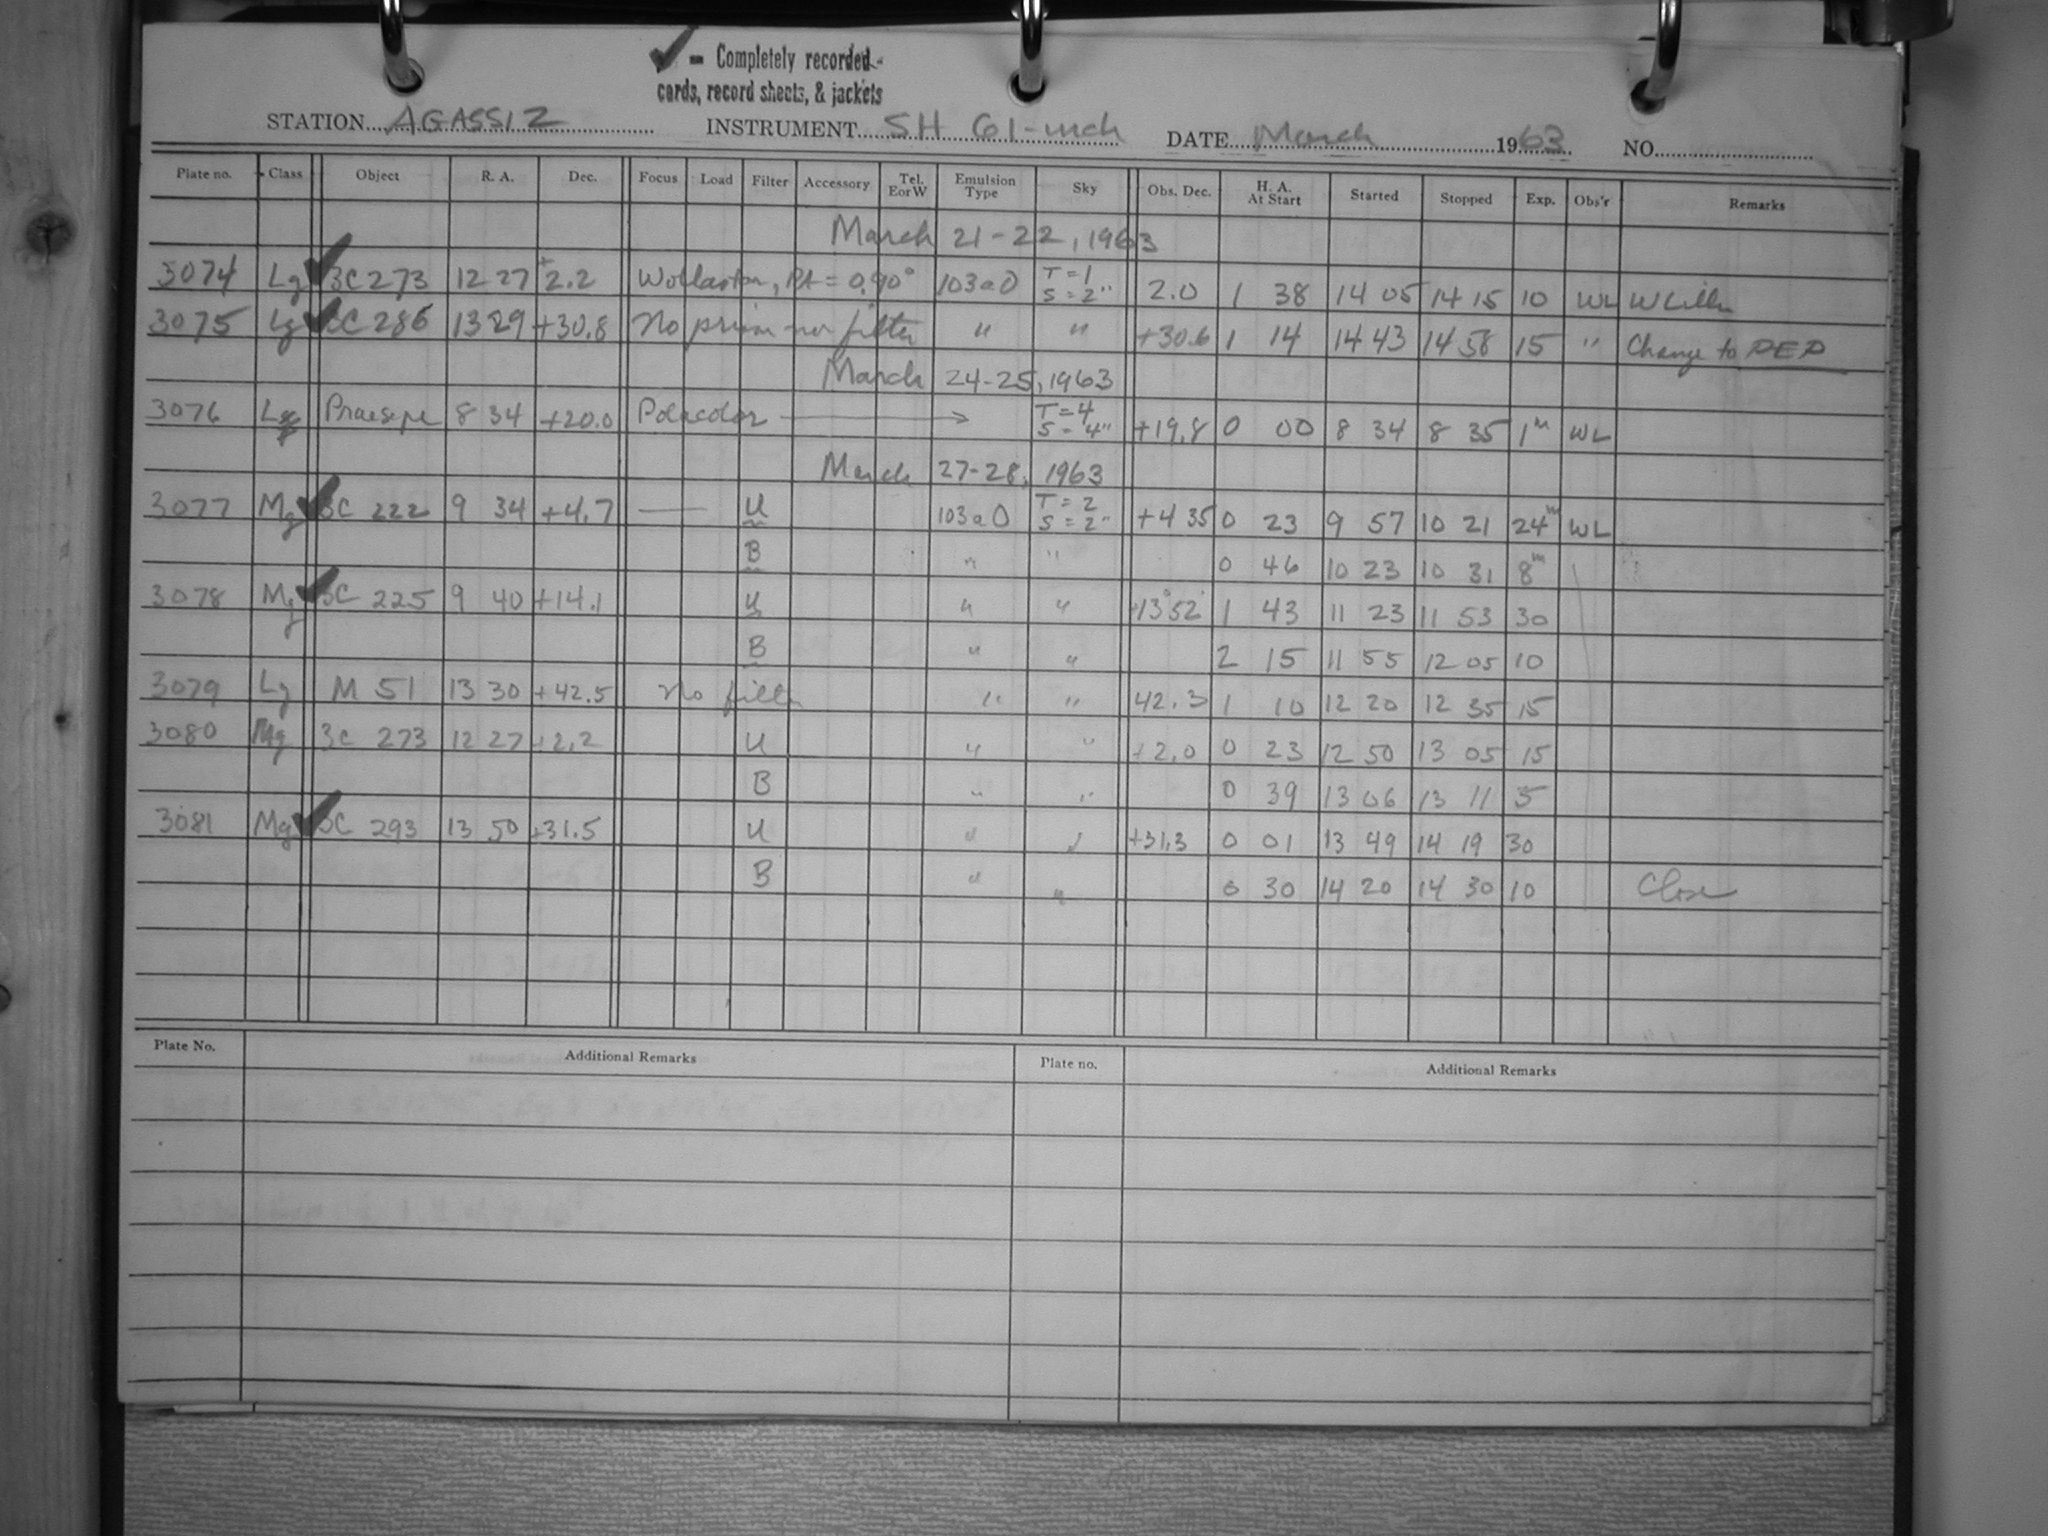 ✓ - Completely recorded
cards, record sheets, & jackets
STATION AGASSIZ INSTRUMENT SH 61-inch DATE March 1963 NO.
Plate no. Class Object R. A. Dec. Focus Load Filter Accessory Tel. E or W Emulsion Type Sky Obs. Dec. H. A. At Start Started Stopped Exp. Obs'r Remarks
March 21-22, 1963
3074 Lg ✓ 3C 273 12 27 +2.2 Wollaston, Pt = 0.90° 103aO T=1 S=2" 2.0 1 38 14 05 14 15 10 WL W Liller
3075 Lg ✓ 3C 286 13 29 +30.8 No prism nor filter " " +30.6 1 14 14 43 14 58 15 " Change to PEP
March 24-25, 1963
3076 Lg Praesepe 8 34 +20.0 Polacolor → T=4 S=4" +19.8 0 00 8 34 8 35 1m WL
March 27-28, 1963
3077 Mg ✓ 3C 222 9 34 +4.7 — U 103aO T=2 S=2" +4 35 0 23 9 57 10 21 24m WL
B " " 0 46 10 23 10 31 8m
3078 Mg ✓ 3C 225 9 40 +14.1 U " " +13°52' 1 43 11 23 11 53 30
B " " 2 15 11 55 12 05 10
3079 Lg M 51 13 30 +42.5 No filter " " 42.3 1 10 12 20 12 35 15
3080 Mg 3C 273 12 27 +2.2 U " " +2.0 0 23 12 50 13 05 15
B " " 0 39 13 06 13 11 5
3081 Mg ✓ 3C 293 13 50 +31.5 U " " +31.3 0 01 13 49 14 19 30
B " " 0 30 14 20 14 30 10 Close
Plate No. Additional Remarks Plate no. Additional Remarks